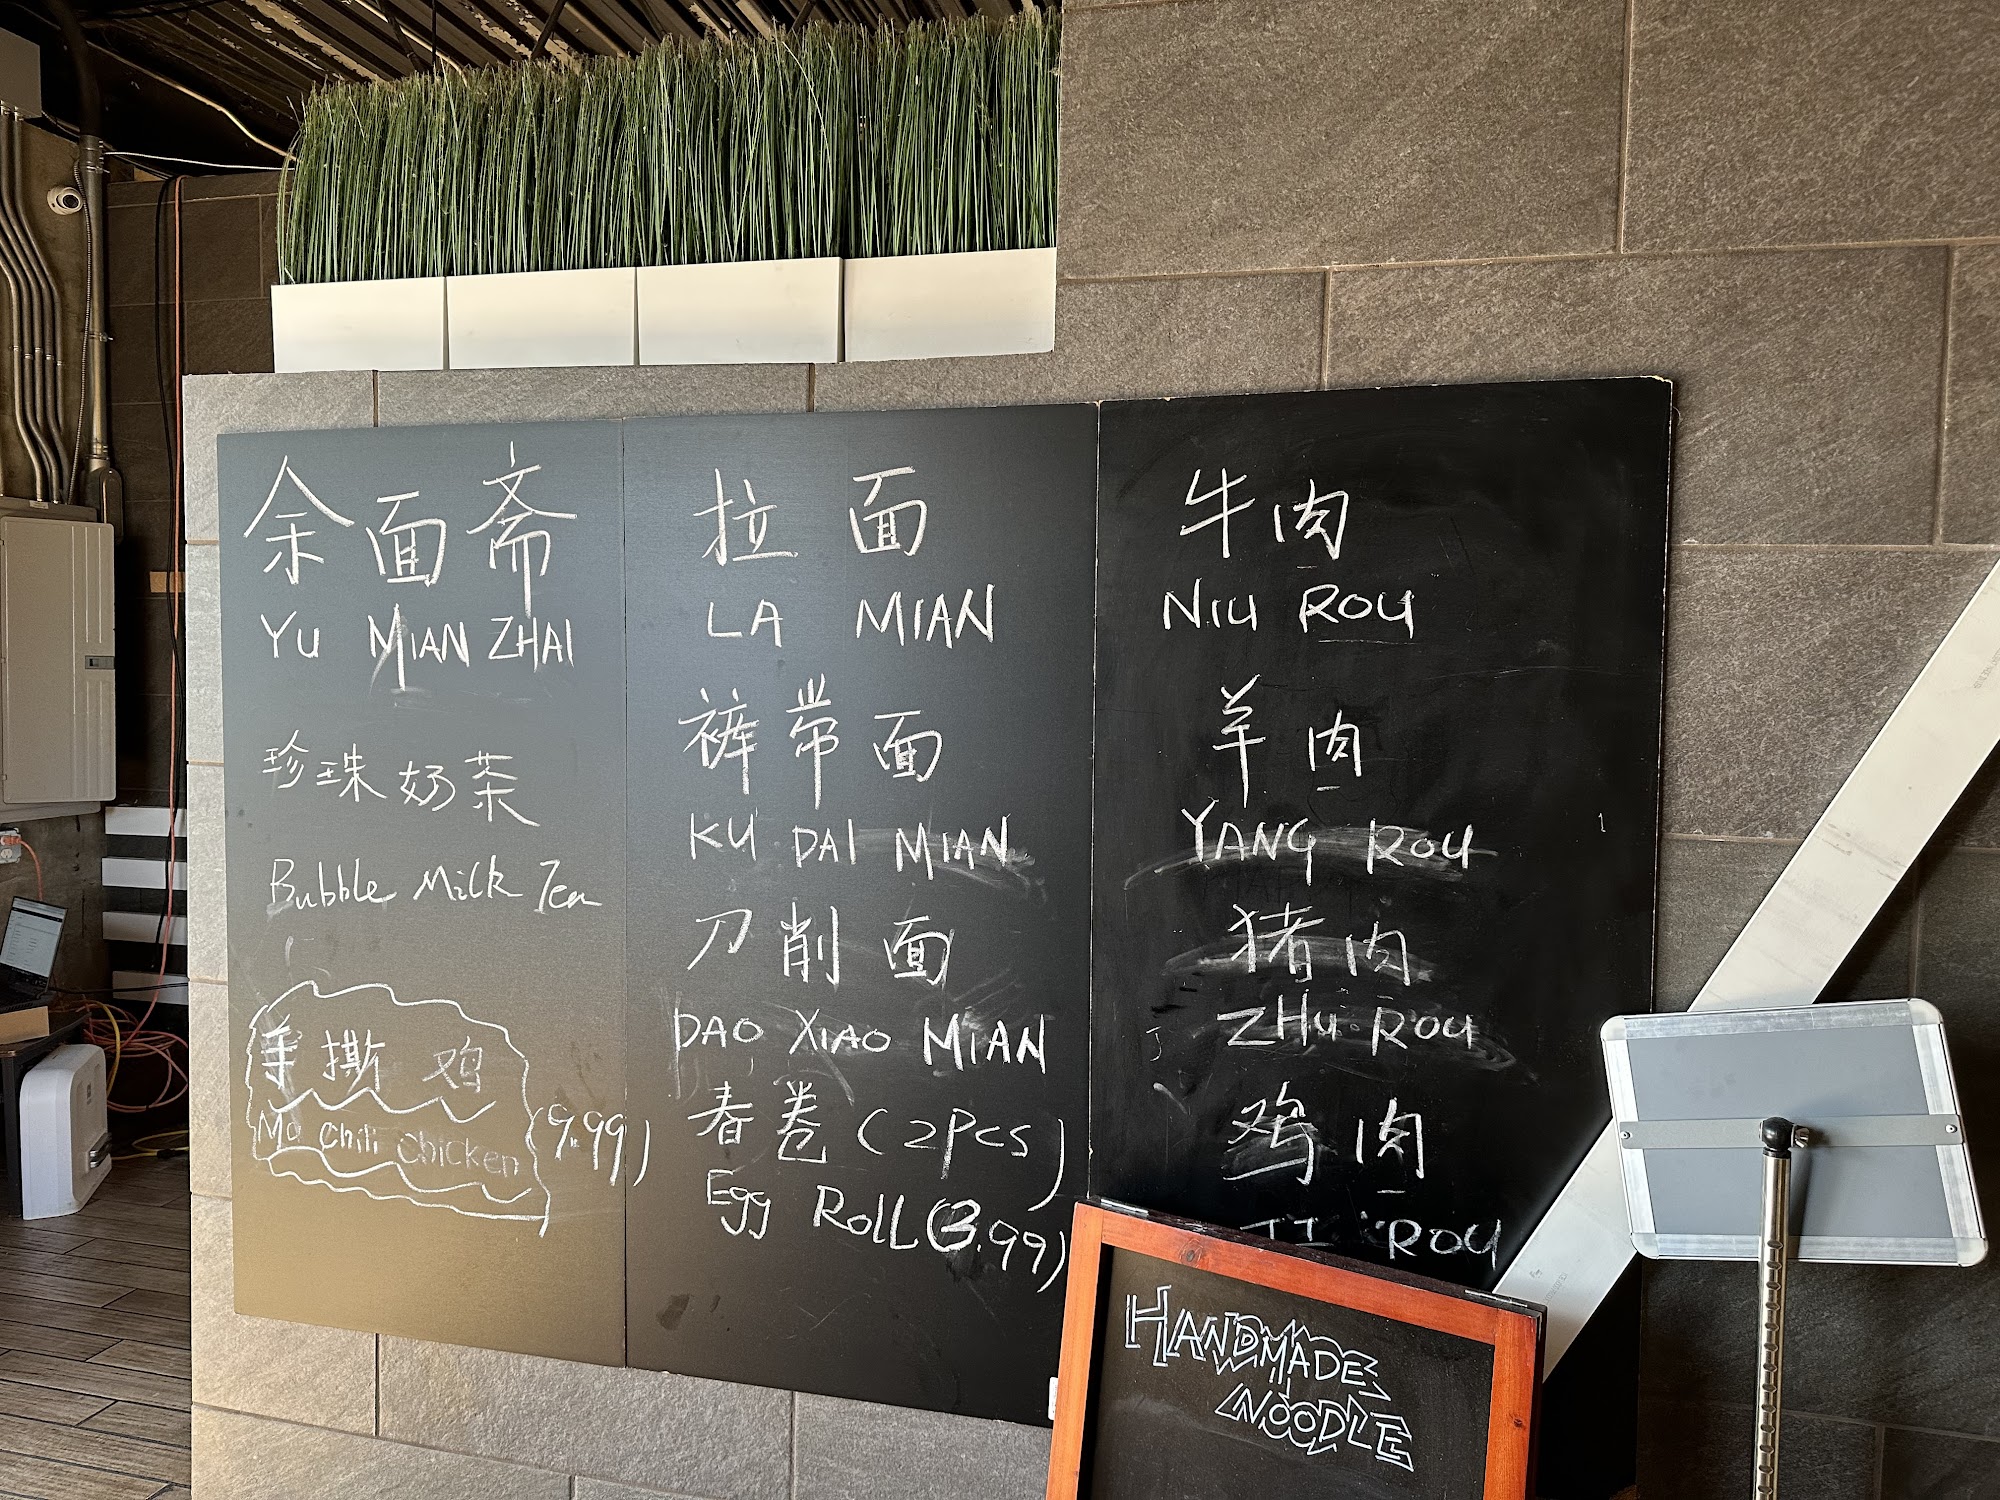 余面斋
YU MIAN ZHAI
珍珠奶茶
Bubble Milk Tea
手撕鸡
Mo Chili Chicken (9.99)
拉面
LA MIAN
裤带面
KU DAI MIAN
刀削面
DAO XIAO MIAN
春卷 (2PCS)
Egg Roll (3.99)
牛肉
NIU ROU
羊肉
YANG ROU
猪肉
ZHU ROU
鸡肉
JI ROU
HANDMADE
NOODLE